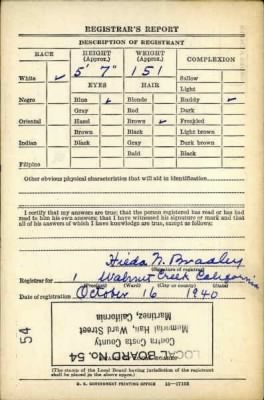 REGISTRAR'S REPORT
DESCRIPTION OF REGISTRANT
RACE HEIGHT (Approx.) WEIGHT (Approx.) COMPLEXION
White ✓ 5' 7" 151 Sallow
EYES HAIR Light
Negro Blue ✓ Blonde Ruddy ✓
Gray Red Dark
Oriental Hazel Brown ✓ Freckled
Brown Black Light brown
Indian Black Gray Dark brown
Bald Black
Filipino
Other obvious physical characteristics that will aid in identification
I certify that my answers are true; that the person registered has read or has had
read to him his own answers; that I have witnessed his signature or mark and that
all of his answers of which I have knowledge are true, except as follows:
Hilda N. Bradley
(Signature of registrar)
Registrar for 1 Walnut Creek California
(Precinct) (Ward) (City or county) (State)
Date of registration October 16 1940
LOCAL BOARD No. 54
Contra Costa County
Memorial Hall, Ward Street
Martinez, California
54
(The stamp of the Local Board having jurisdiction of the registrant
shall be placed in the above space.)
U. S. GOVERNMENT PRINTING OFFICE 16—17105